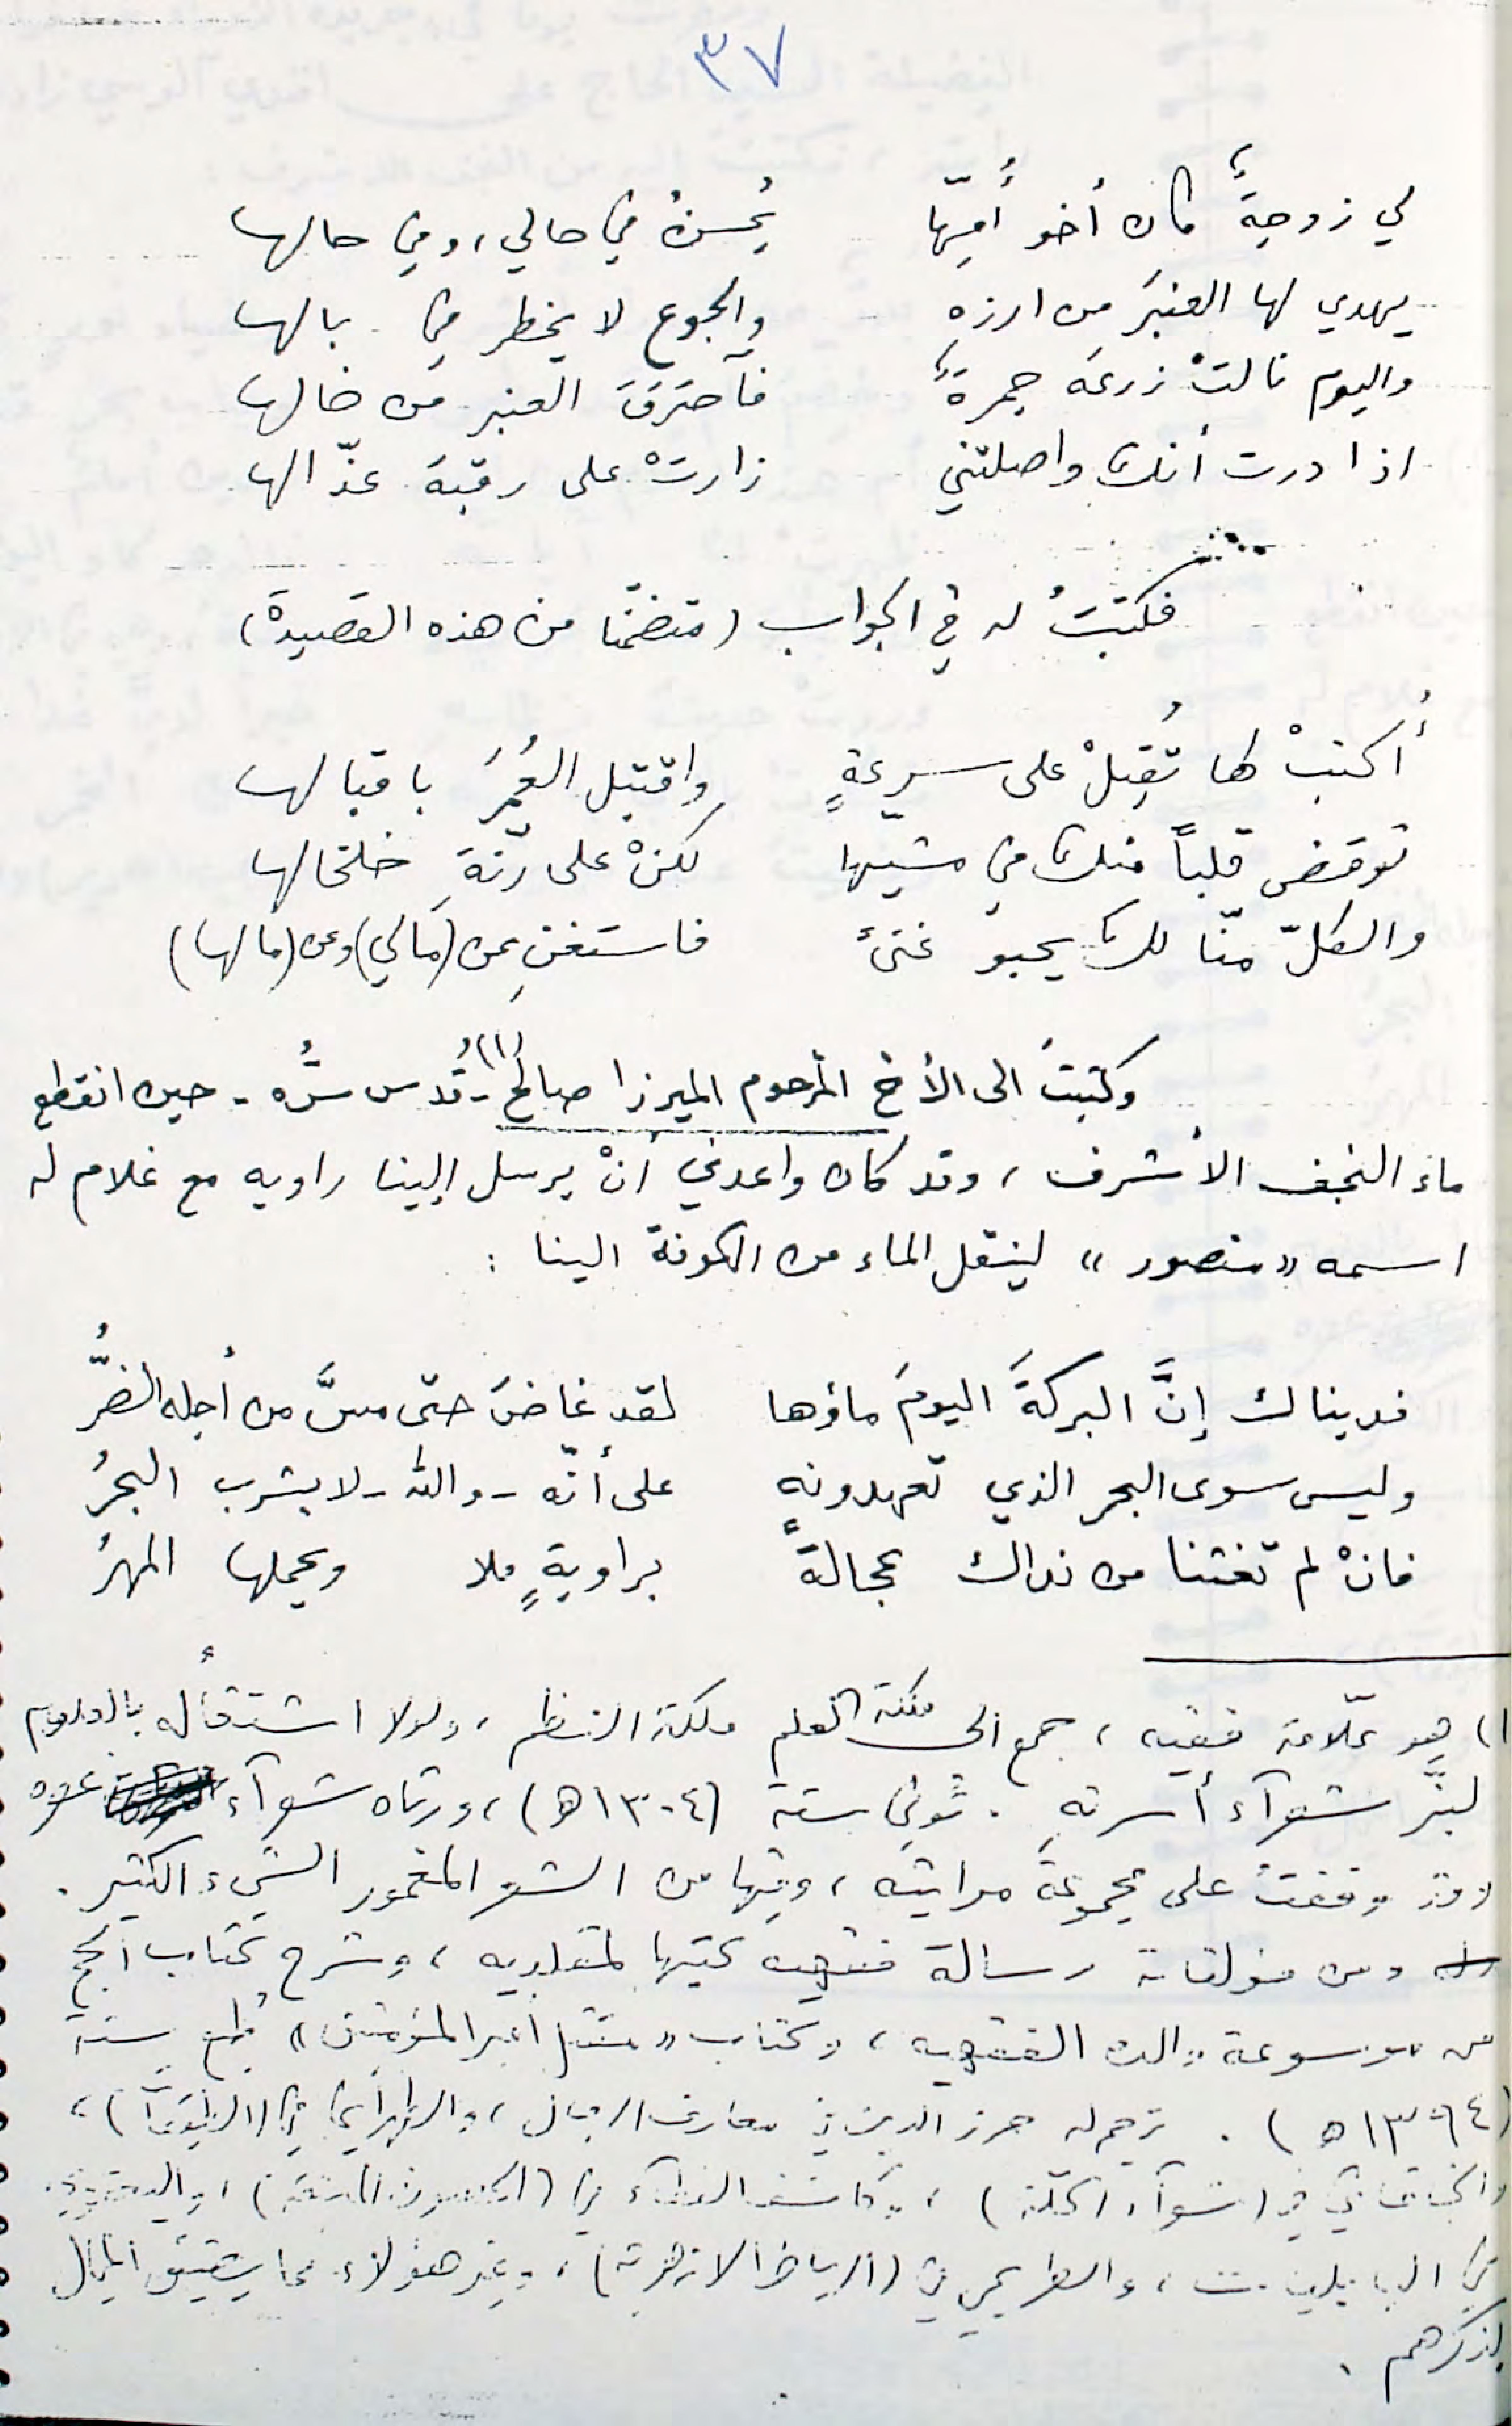 ٣٧
لي زوجةٌ كان أخو أُمِّها يُحسنُ في حالي، وفي حالها
يهدي لها العنبَر من ارزه والجوع لا يخطر في بالها
واليوم نالتْ زرعَه جمرةٌ فآحترَقَ العنبر من خالها
اذا درت أنك واصلتني زارتْ على رقبة عذّالها
فكتبتُ له في الجواب (متضمّنا من هذه القصيدة)
أُكتبْ لها تُقبِلْ على سرعةٍ واقتبل العُمرَ باقبالها
توقض قلباً منك في مشيها لكنْ على رنّةِ خلخالها
والكلّ منّا لك يحبو غنىً فاستغنِ عن (مالي) وعن (مالها)
وكتبتُ الى الأخ المرحوم الميرزا صالح(١) - قُدس سرُّه - حين انقطع
ماء النجف الأشرف، وقد كان واعدني انْ يرسل إلينا راويه مع غلام له
اسمه «منصور» لينقل الماء من الكوفة الينا :
فديناك إنَّ البركةَ اليومَ ماؤها لقد غاضَ حتى مسَّ من أجله الضرُّ
وليس سوى البحر الذي تعهدونه على أنّه - والله - لا يشرب البحرُ
فانْ لم تغثنا من نداك عجالةً براويةٍ ملا ويحملها المهرُ
١) هو علّامة فقيه، جمع الى ملكة العلم ملكة النظم، ولولا اشتغاله بالعلوم
لبزَّ شعرآء أسرته. تُوفي سنة (١٣٠٤ه)، ورثاه شعرآء عصره
وقد وقفت على مجموعة مراثيه، وفيها من الشعر المغمور الشيء الكثير.
ومن مؤلفاته رسالة فقهيه كتبها لمقلديه، وشرح كتاب الحج
من موسوعة والده الفقهيه، وكتاب «مقتل أمير المؤمنين» طُبع سنة
(١٣٩٤ه). ترجم له حرز الدين في معارف الرجال، والطهراني في (الطبقات)،
والخاقاني في (شعرآء الحلّة)، وكاشف الغطآء في (الحصون المنيعة)، واليعقوبي
في البابليات، والطريحي في (الرياض الازهرية)، وغير هؤلاء مما يضيق المجال
بذكرهم.